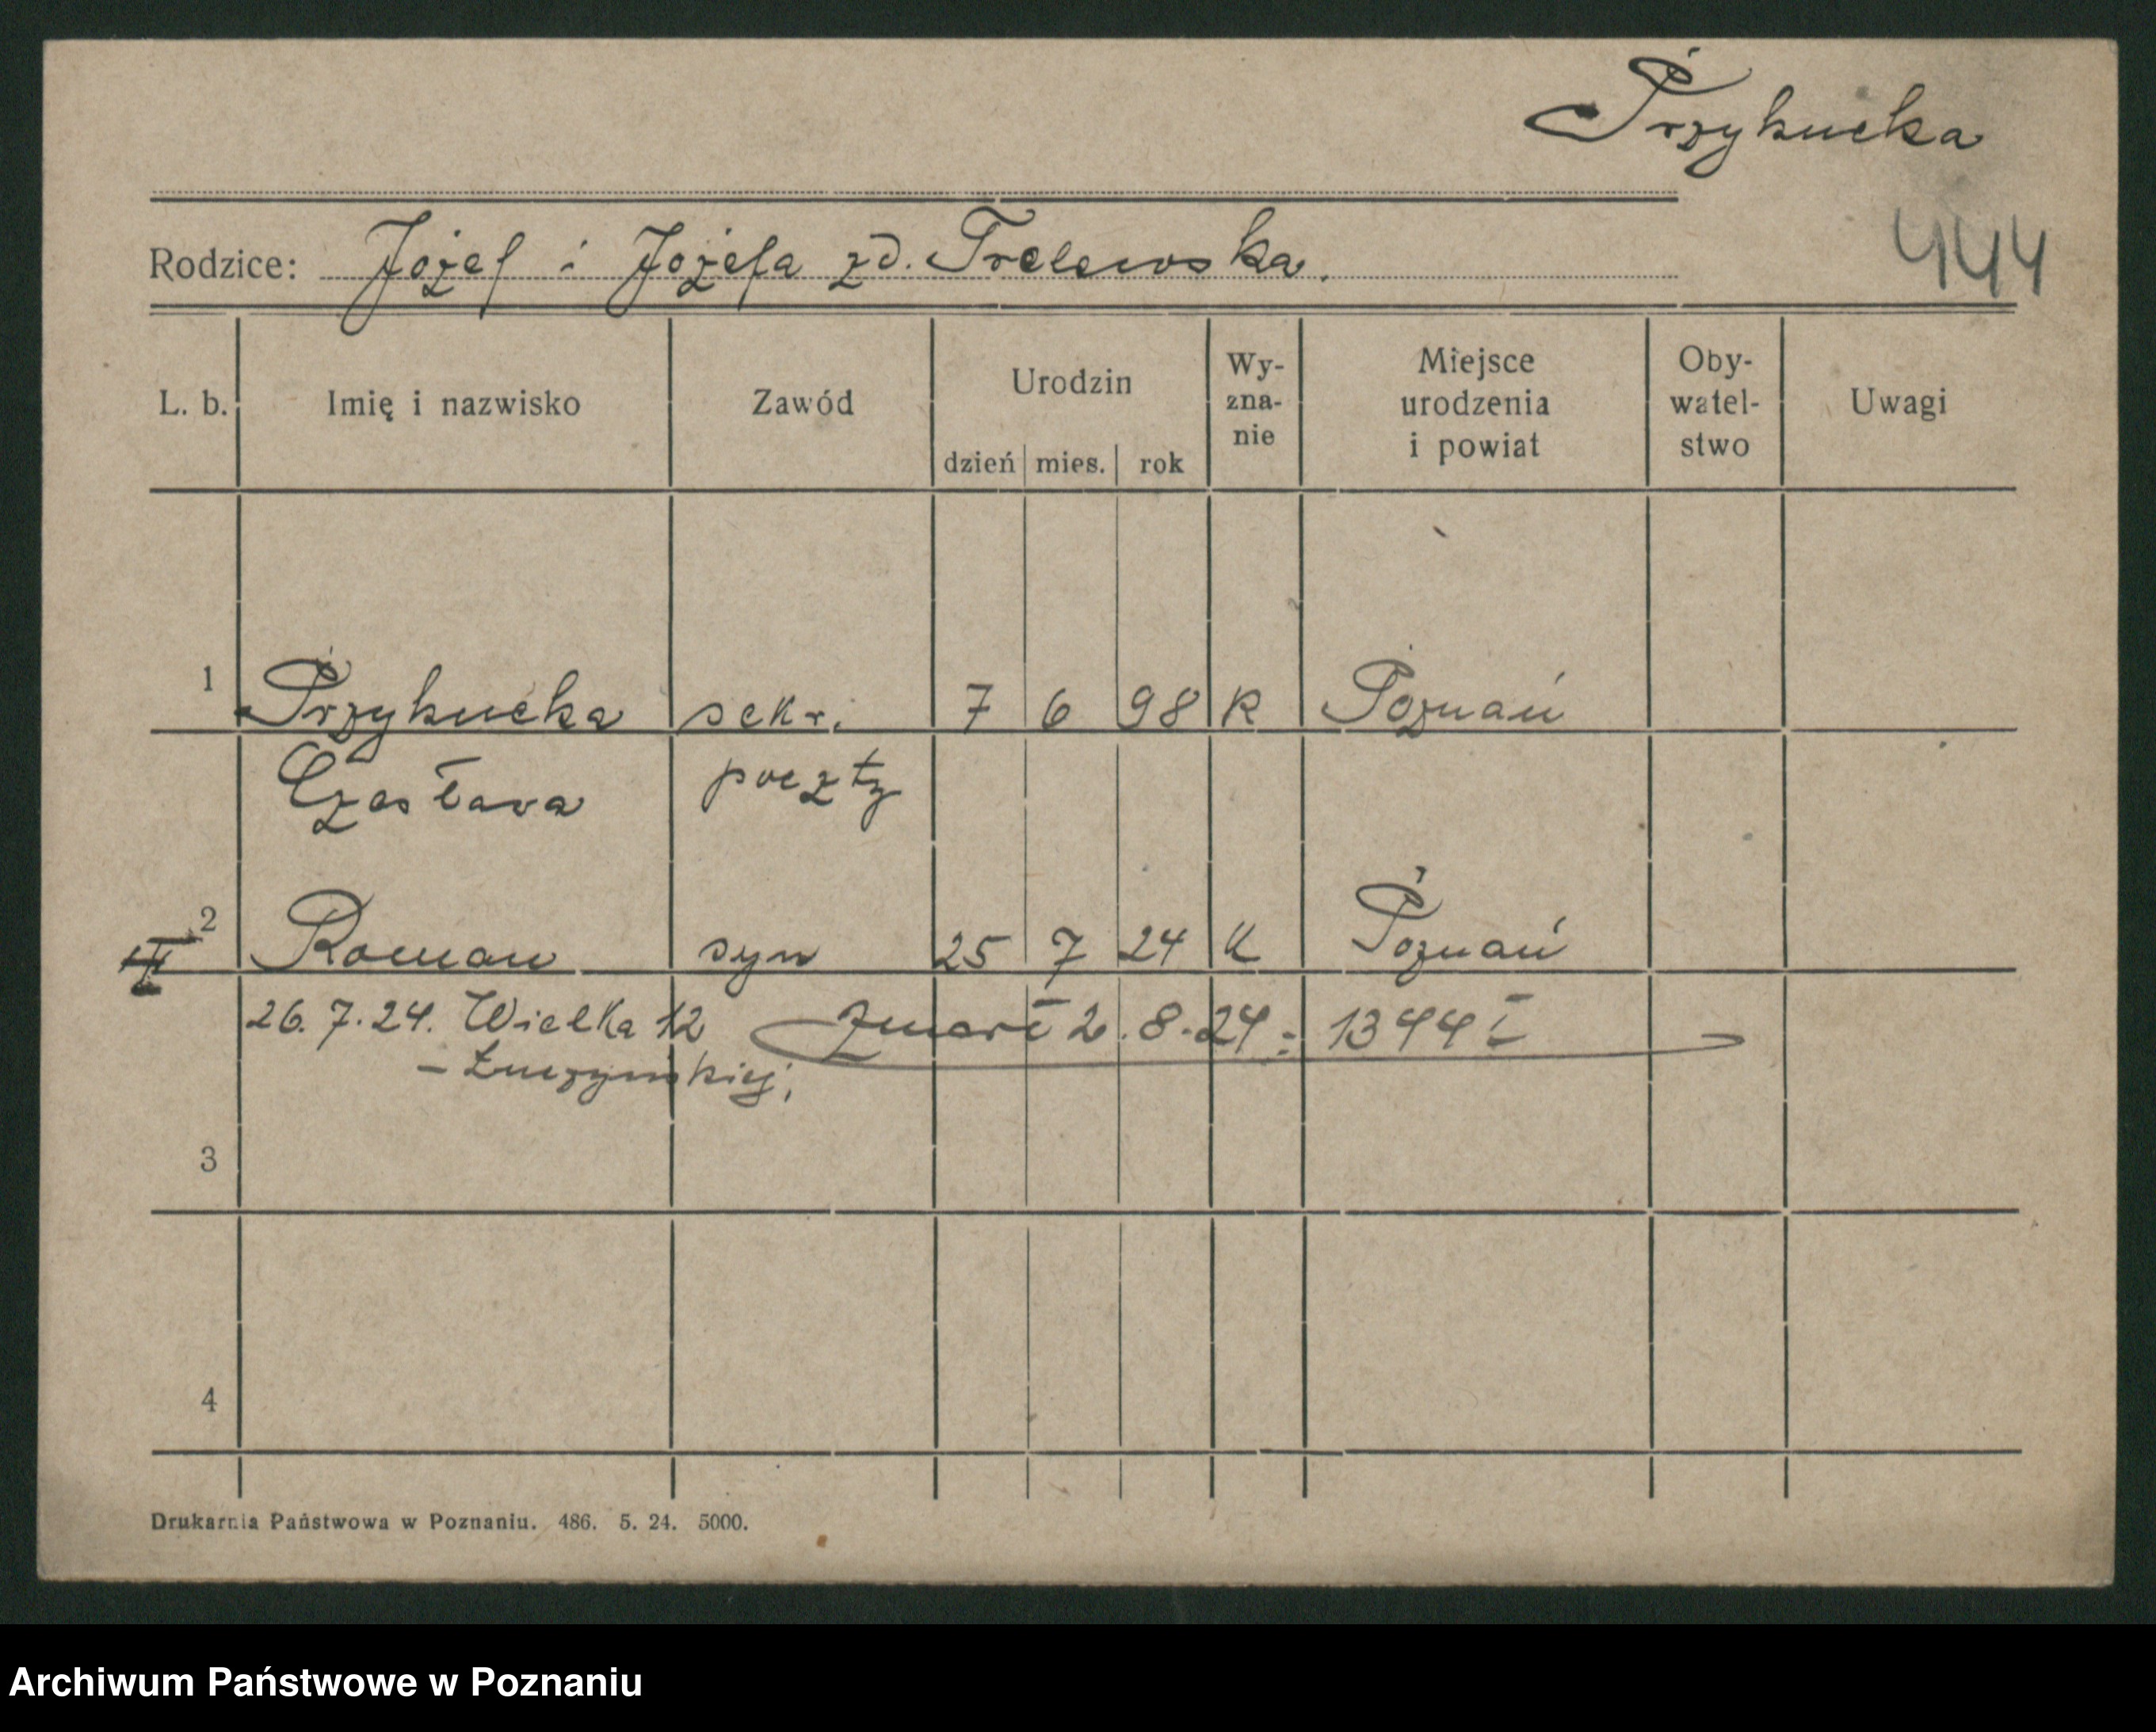 Przykucka
444
Rodzice: Józef i Józefa zd. Trelewska.
L. b. Imię i nazwisko Zawód Urodzin dzień mies. rok Wy-zna-nie Miejsce urodzenia i powiat Oby-watel-stwo Uwagi
1 Przykucka sekr. 7 6 98 K Poznań
Czesława poczty
2 Roman syn 25 7 24 K Poznań
26. 7. 24. Wielka 12 Zmarł 2. 8. 24. 1344 I
3
4
Drukarnia Państwowa w Poznaniu. 486. 5. 24. 5000.
Archiwum Państwowe w Poznaniu